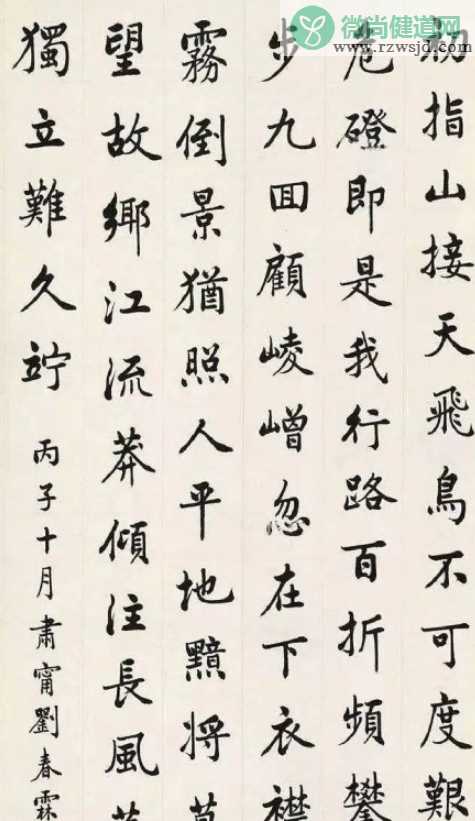 初指山接天飛鳥不可度艱
危磴即是我行路百折頻攀
步九回顧崚嶒忽在下衣襟
霧倒景猶照人平地黯將
望故鄉江流莽傾注長風
獨立難久竚
丙子十月肅甯劉春霖
微尚健道网
www.rzwsjd.com